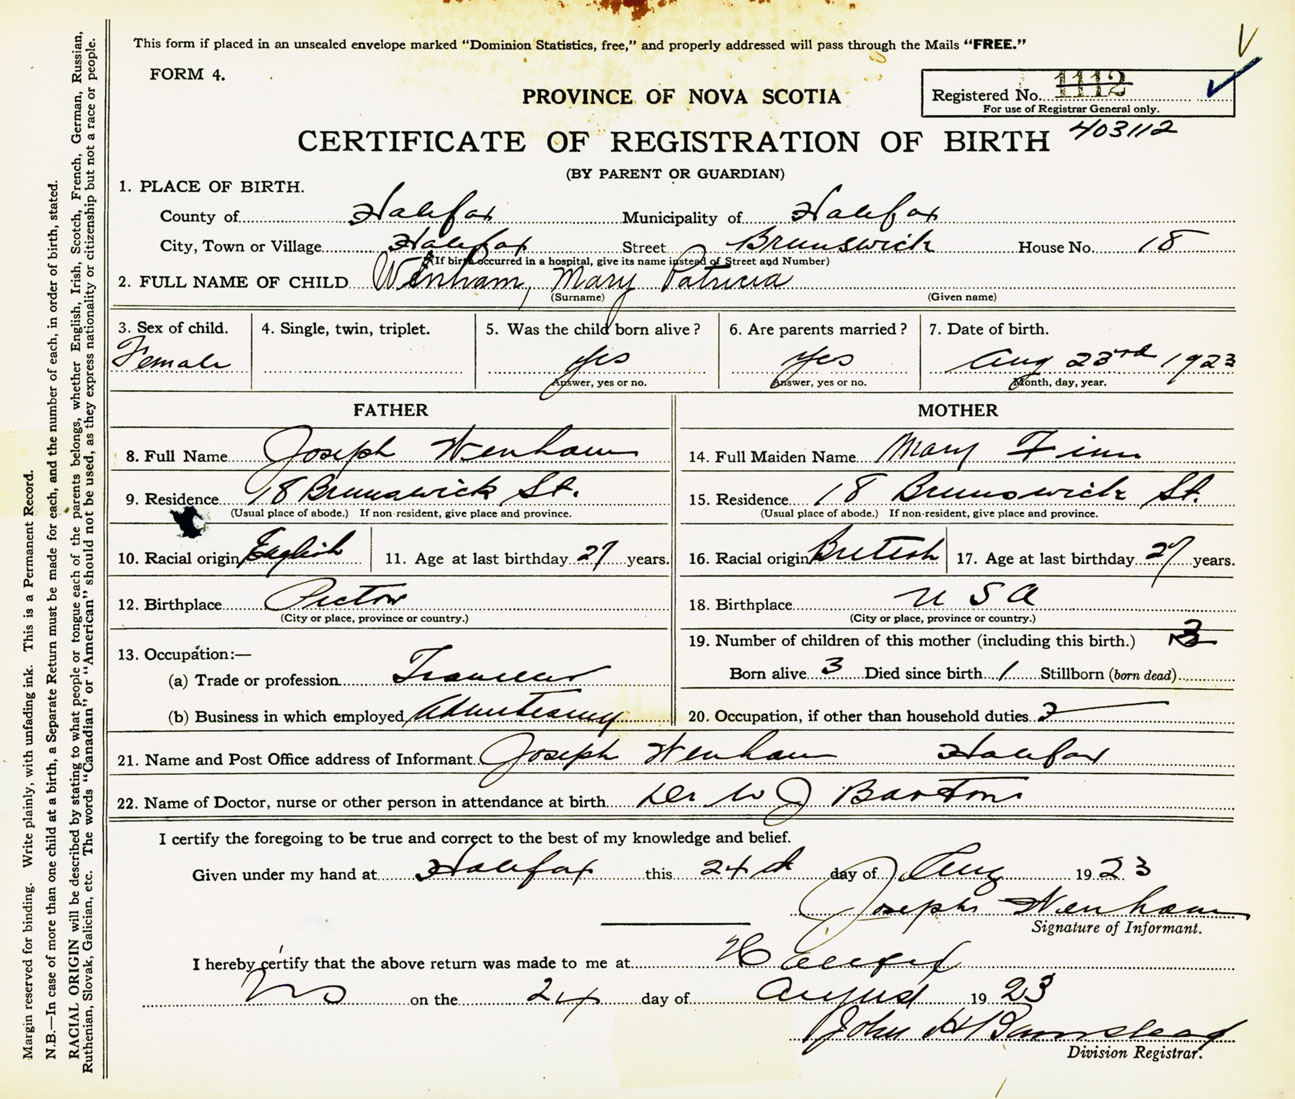 This form if placed in an unsealed envelope marked "Dominion Statistics, free," and properly addressed will pass through the Mails "FREE."
FORM 4.
Registered No. 1112
For use of Registrar General only.
PROVINCE OF NOVA SCOTIA
403112
CERTIFICATE OF REGISTRATION OF BIRTH
(BY PARENT OR GUARDIAN)
1. PLACE OF BIRTH.
County of Halifax Municipality of Halifax
City, Town or Village Halifax Street Brunswick House No. 18
(If birth occurred in a hospital, give its name instead of Street and Number)
2. FULL NAME OF CHILD Wenham, Mary Patricia
(Surname) (Given name)
3. Sex of child. 4. Single, twin, triplet. 5. Was the child born alive? 6. Are parents married? 7. Date of birth.
Female yes yes Aug 23rd 1923
Answer, yes or no. Answer, yes or no. Month, day, year.
FATHER MOTHER
8. Full Name Joseph Wenham 14. Full Maiden Name Mary Finn
9. Residence 18 Brunswick St. 15. Residence 18 Brunswick St.
(Usual place of abode.) If non-resident, give place and province. (Usual place of abode.) If non-resident, give place and province.
10. Racial origin English 11. Age at last birthday 27 years. 16. Racial origin British 17. Age at last birthday 27 years.
12. Birthplace Pictou 18. Birthplace U S A
(City or place, province or country.) (City or place, province or country.)
19. Number of children of this mother (including this birth.) 3
13. Occupation:—
Born alive 3 Died since birth 1 Stillborn (born dead)
(a) Trade or profession
(b) Business in which employed 20. Occupation, if other than household duties
21. Name and Post Office address of Informant Joseph Wenham Halifax
22. Name of Doctor, nurse or other person in attendance at birth Dr W J Barton
I certify the foregoing to be true and correct to the best of my knowledge and belief.
Given under my hand at Halifax this 24th day of Aug 1923
Joseph Wenham
Signature of Informant.
I hereby certify that the above return was made to me at Halifax
NS on the 24 day of August 1923
John H Barnstead
Division Registrar.
Margin reserved for binding. Write plainly, with unfading ink. This is a Permanent Record.
N.B.—In case of more than one child at a birth, a Separate Return must be made for each, and the number of each, in order of birth, stated.
RACIAL ORIGIN will be described by stating to what people or tongue each of the parents belongs, whether English, Irish, Scotch, French, German, Russian,
Ruthenian, Slovak, Galician, etc. The words "Canadian" or "American" should not be used, as they express nationality or citizenship but not a race or people.